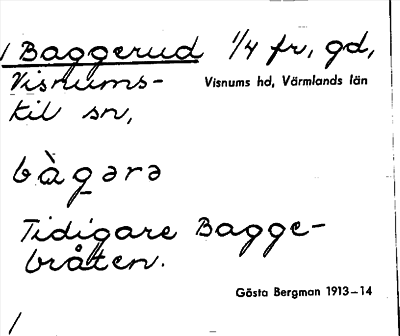 Baggerud 1/4 fr, gd,
Visnums- Visnums hd, Värmlands län
kil sn,
bàgərə
Tidigare Bagge-
bråten.
Gösta Bergman 1913–14
/